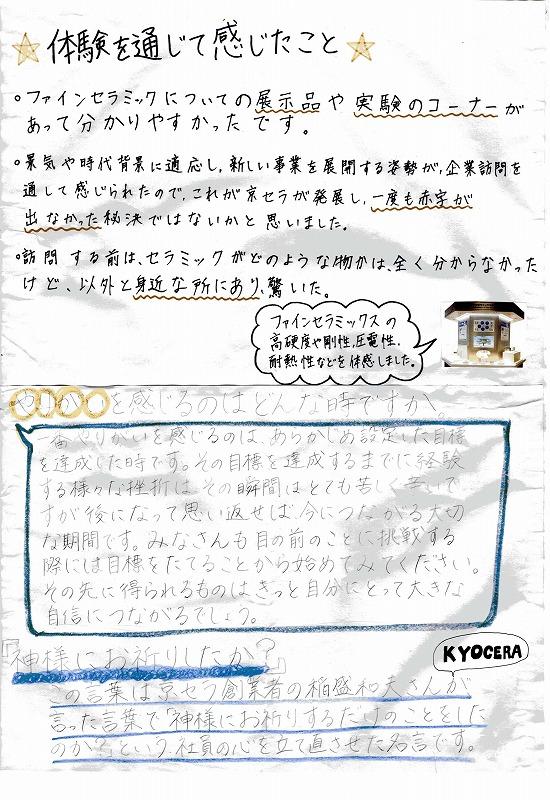 ☆体験を通じて感じたこと☆
・ファインセラミックについての展示品や実験のコーナーが
あって分かりやすかったです。
・景気や時代背景に適応し、新しい事業を展開する姿勢が、企業訪問を
通して感じられたので、これが京セラが発展し、一度も赤字が
出なかった秘決ではないかと思いました。
・訪問する前は、セラミックがどのような物かは、全く分からなかった
けど、以外と身近な所にあり、驚いた。
ファインセラミックスの
高硬度や剛性、圧電性、
耐熱性などを体感しました。
やりがいを感じるのはどんな時ですか。
一番やりがいを感じるのは、あらかじめ設定した目標
を達成した時です。その目標を達成するまでに経験
する様々な挫折は、その瞬間はとても苦しく辛いで
すが後になって思い返せば今につながる大切
な期間です。みなさんも目の前のことに挑戦する
際には目標をたてることから始めてみてください。
その先に得られるものはきっと自分にとって大きな
自信につながるでしょう。
『神様にお祈りしたか?』
KYOCERA
この言葉は京セラ創業者の稲盛和夫さんが
言った言葉で「神様にお祈りするだけのことをした
のか?」という、社員の心を立て直させた名言です。